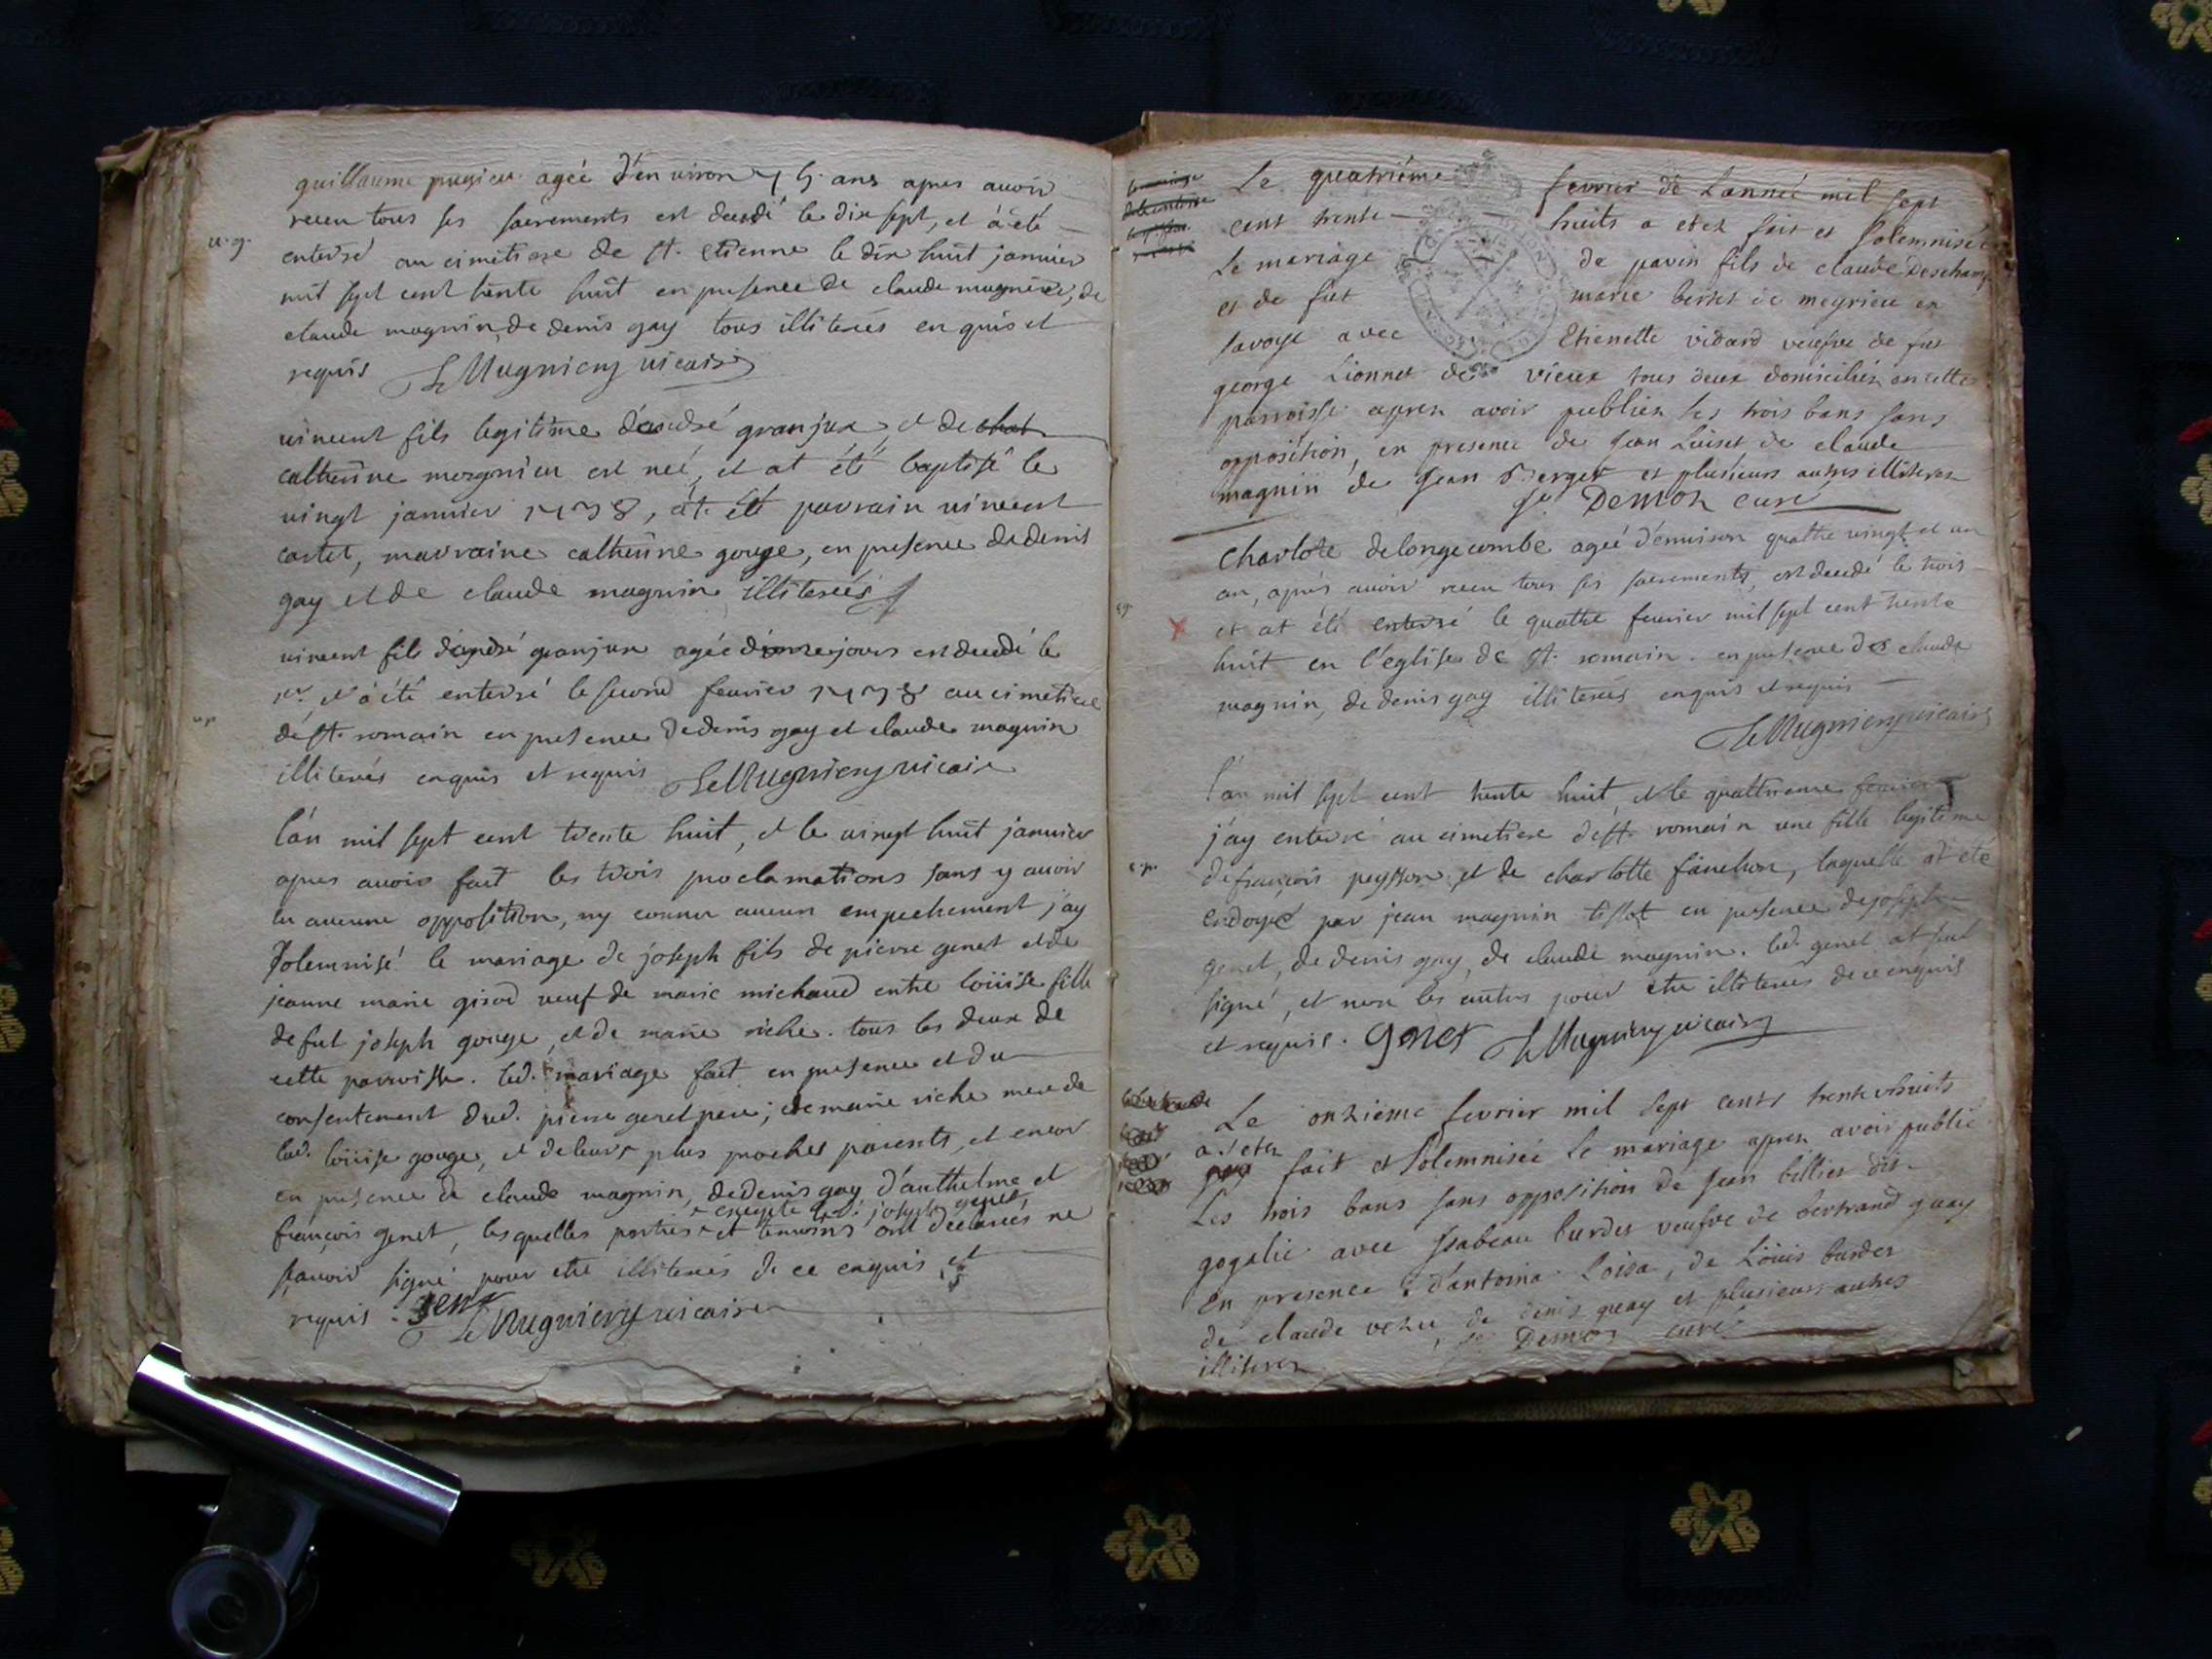 guillaume pugieu agée d'environ 75 ans apres auoir
receu tous ses sacrements est decedé le dix sept, et à été
enterré au cimetiere de st. etienne le dix huit januier
mil sept cent trente huit en presence de claude magnin, de
claude magnin, de denis gay tous illiterés enquis et
requis Mugniery uicaire
uincent fils legitime d'andré granjux, et de chat
catherine morgnieu est neé, et at été baptisé le
uingt januier 1738, at été parrain uincent
cartet, marraine catherine gouge, en presence de denis
gay et de claude magnin illiterés
uincent fils d'andré granjux agée d'onze jours est decedé le
1er. et à été enterré le second feurier 1738 au cimetiere
de st. romain en presence de denis gay et claude magnin
illiterés enquis et requis Mugniery uicaire
l'an mil sept cent trente huit, et le uingt huit januier
apres auoir fait les trois proclamations sans y auoir
eu aucune opposition, ny connu aucun empechement j'ay
solemnisé le mariage de joseph fils de pierre genet et de
jeanne marie girod ueuf de marie michaud entre loüise fille
de fut joseph gouge, et de marie riche. tous les deux de
cette parroisse. led. mariage fait en presence et du
consentement dud. pierre genet pere; de marie riche mere de
lad. loüise gouge, et de leurs plus proches parents, et encor
en presence de claude magnin, de denis gay, d'anthelme et
excepté led. joseph genet
françois genet, lesquelles parties et temoins ont declarés ne
scauoir signé pour etre illiterés de ce enquis et
requis. genet Mugniery uicaire
Le quatriéme fevrier de Lanneé mil sept
cent trente huits a etez fait et solemniseé
Le mariage de pavin fils de claude Deschamp
et de fut marie berset de meyrieu en
savoye avec Etienette vidard veufve de fut
george Lionnet de vieux tous deux domiciliéz en cette
parroisse aprez avoir publiéz les trois bans sans
opposition, en presence de jean Loiset de claude
magnin de jean Berget et plusieurs autres illiterez
Demoz curé
charlote delongecombe ageé d'enuiron quattre uingt et un
an, aprés auoir receu tous ses sacrements, est decedé le trois
et at été enterré le quattre feurier mil sept cent trente
huit en l'eglise de st. romain. en presence de claude
magnin, de denis gay illiterés enquis et requis
Mugniery uicaire
l'an mil sept cent trente huit, et le quattrieme feurier
j'ay enterré au cimetiere de st. romain une fille legitime
de françois peysson et de charlotte fanehon, laquelle at été
endoyé par jean magnin tissot en presence de joseph
genet, de denis gay, de claude magnin. led. genet at seul
signé, et non les autres pour etre illiterés de ce enquis
et requis. genet Mugniery uicaire
Le onziéme fevrier mil sept cents trente et huits
a etez
fait et solemniseé Le mariage aprez avoir publié
Les trois bans sans opposition de jean billiet dit
gogalie avec isabeau burdet veufve de bertrand guay
en presence d'antoina Loisa, de Loüis burdet
de claude de denis guay et plusieurs autres
illiterez Demoz curé